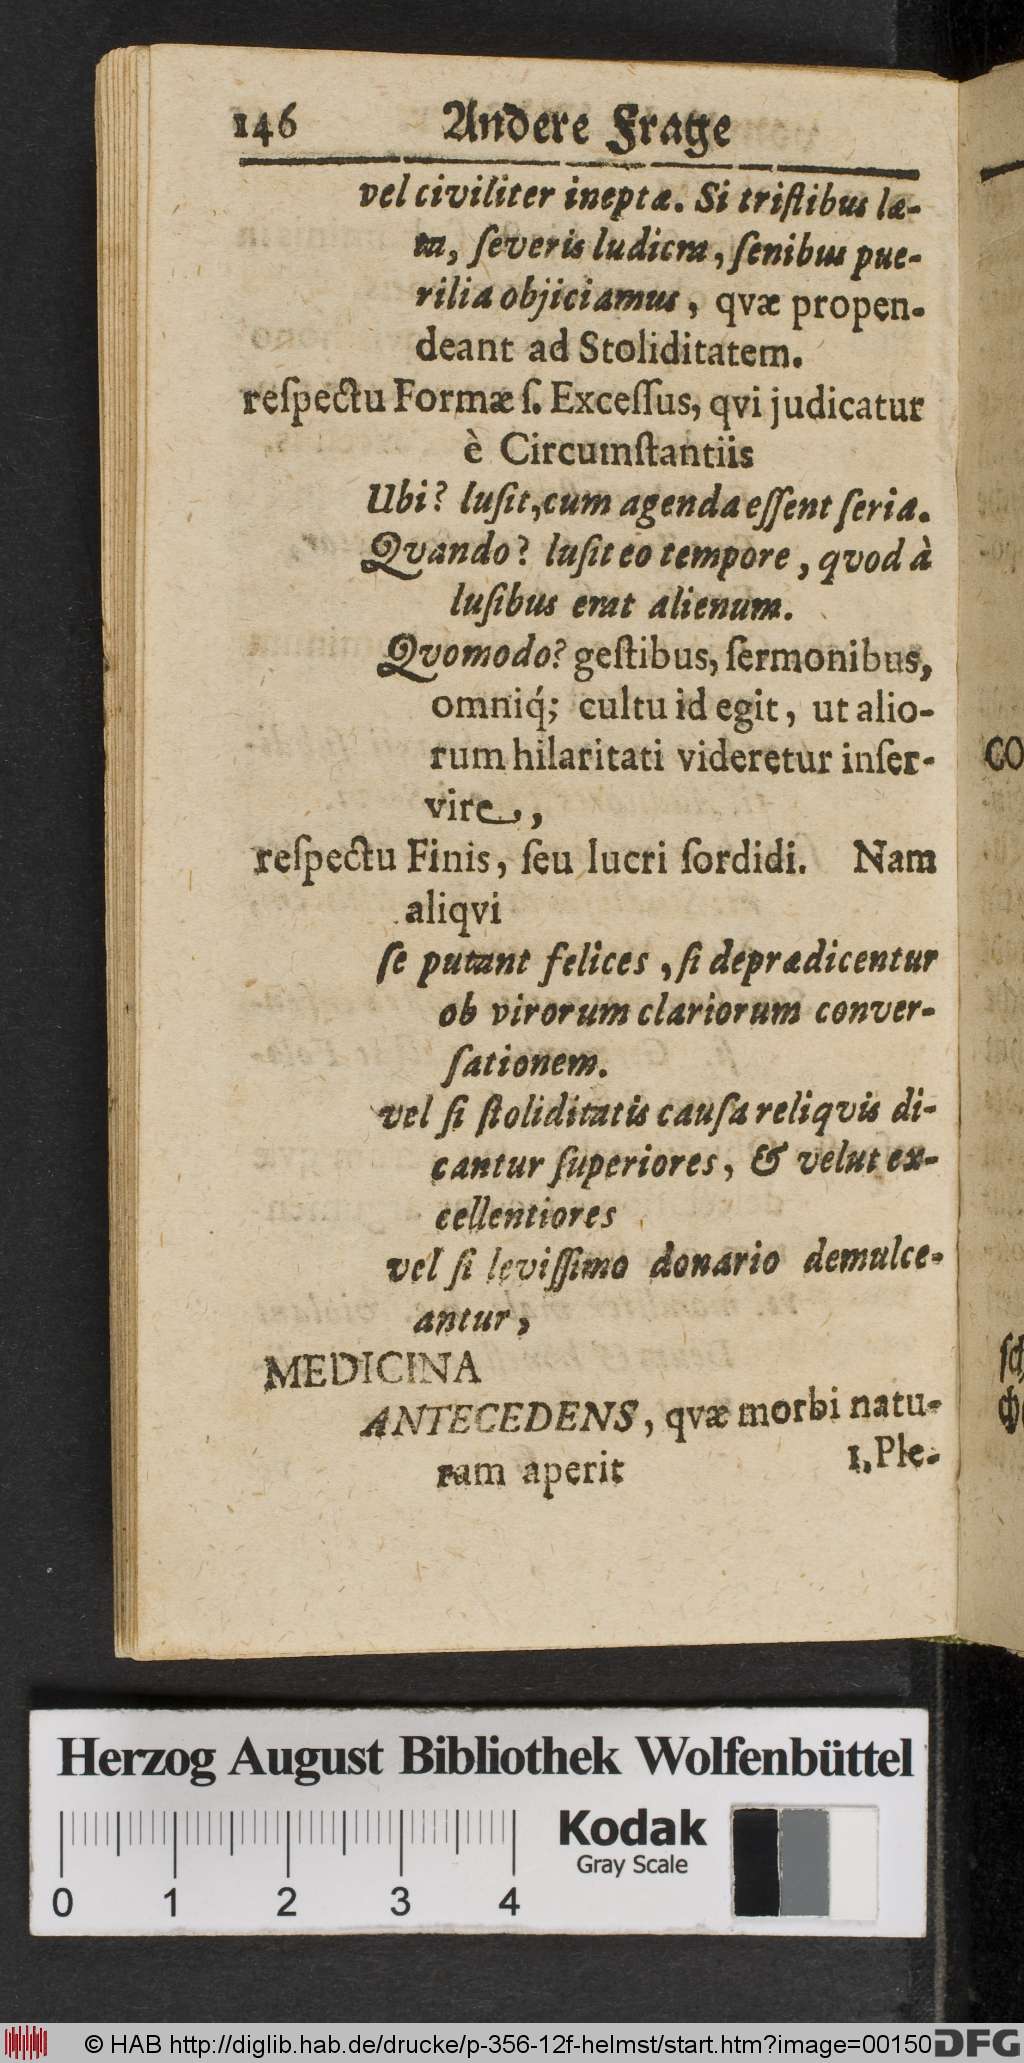 146 Andere Frage
vel civiliter ineptæ. Si triſtibus læ-
ta, ſeveris ludicra, ſenibus pue-
rilia objiciamus, qvæ propen-
deant ad Stoliditatem.
reſpectu Formæ ſ. Exceſſus, qvi judicatur
è Circumſtantiis
Ubi? luſit, cum agenda eſſent ſeria.
Qvando? luſit eo tempore, qvod à
luſibus erat alienum.
Qvomodo? geſtibus, ſermonibus,
omniq́; cultu id egit, ut alio-
rum hilaritati videretur inſer-
vire,
reſpectu Finis, ſeu lucri ſordidi. Nam
aliqvi
ſe putant felices, ſi deprædicentur
ob virorum clariorum conver-
ſationem.
vel ſi ſtoliditatis cauſa reliqvis di-
cantur ſuperiores, & velut ex-
cellentiores
vel ſi leviſſimo donario demulce-
antur,
MEDICINA
ANTECEDENS, qvæ morbi natu-
ram aperit
1. Ple-
CO
ſch
Herzog August Bibliothek Wolfenbüttel
Kodak
Gray Scale
0 1 2 3 4
© HAB http://diglib.hab.de/drucke/p-356-12f-helmst/start.htm?image=00150
DFG